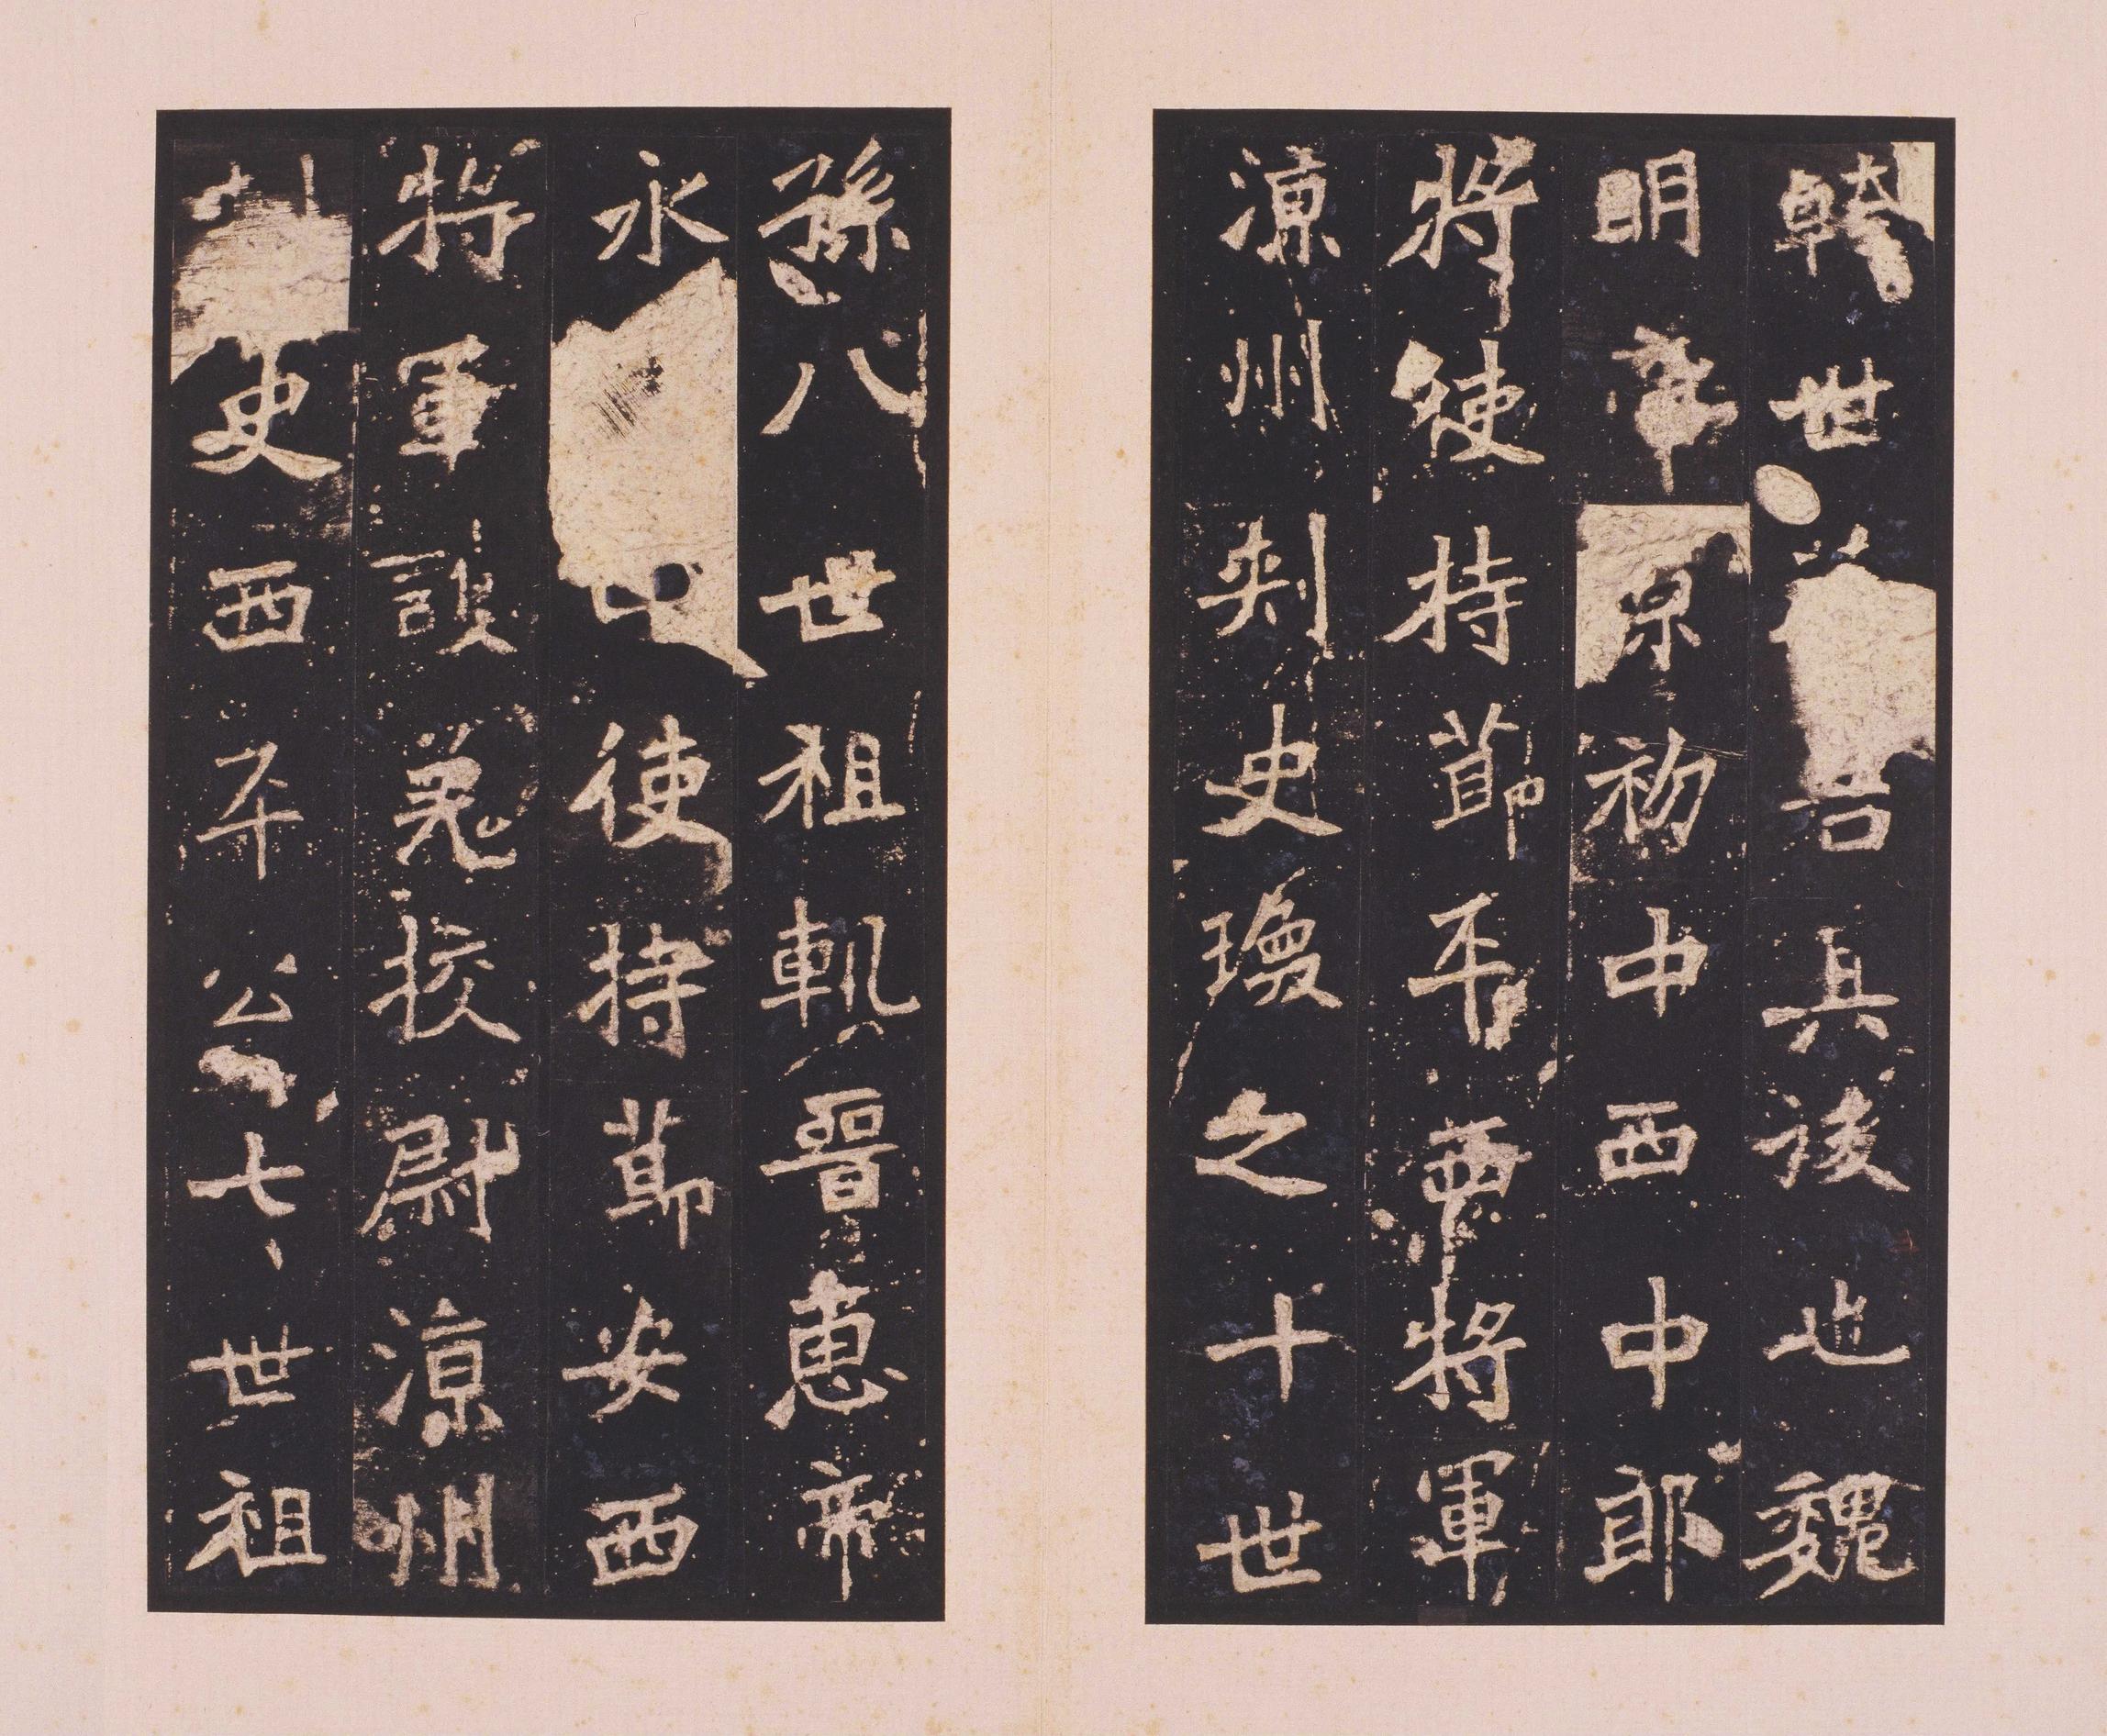 幹世著君其後也魏
明章景初中西中郎
將使持節平西將軍
涼州刺史瓊之十世
孫八世祖軌晉惠帝
永中使持節安西
將軍護羌校尉涼州
刺史西平公七世祖